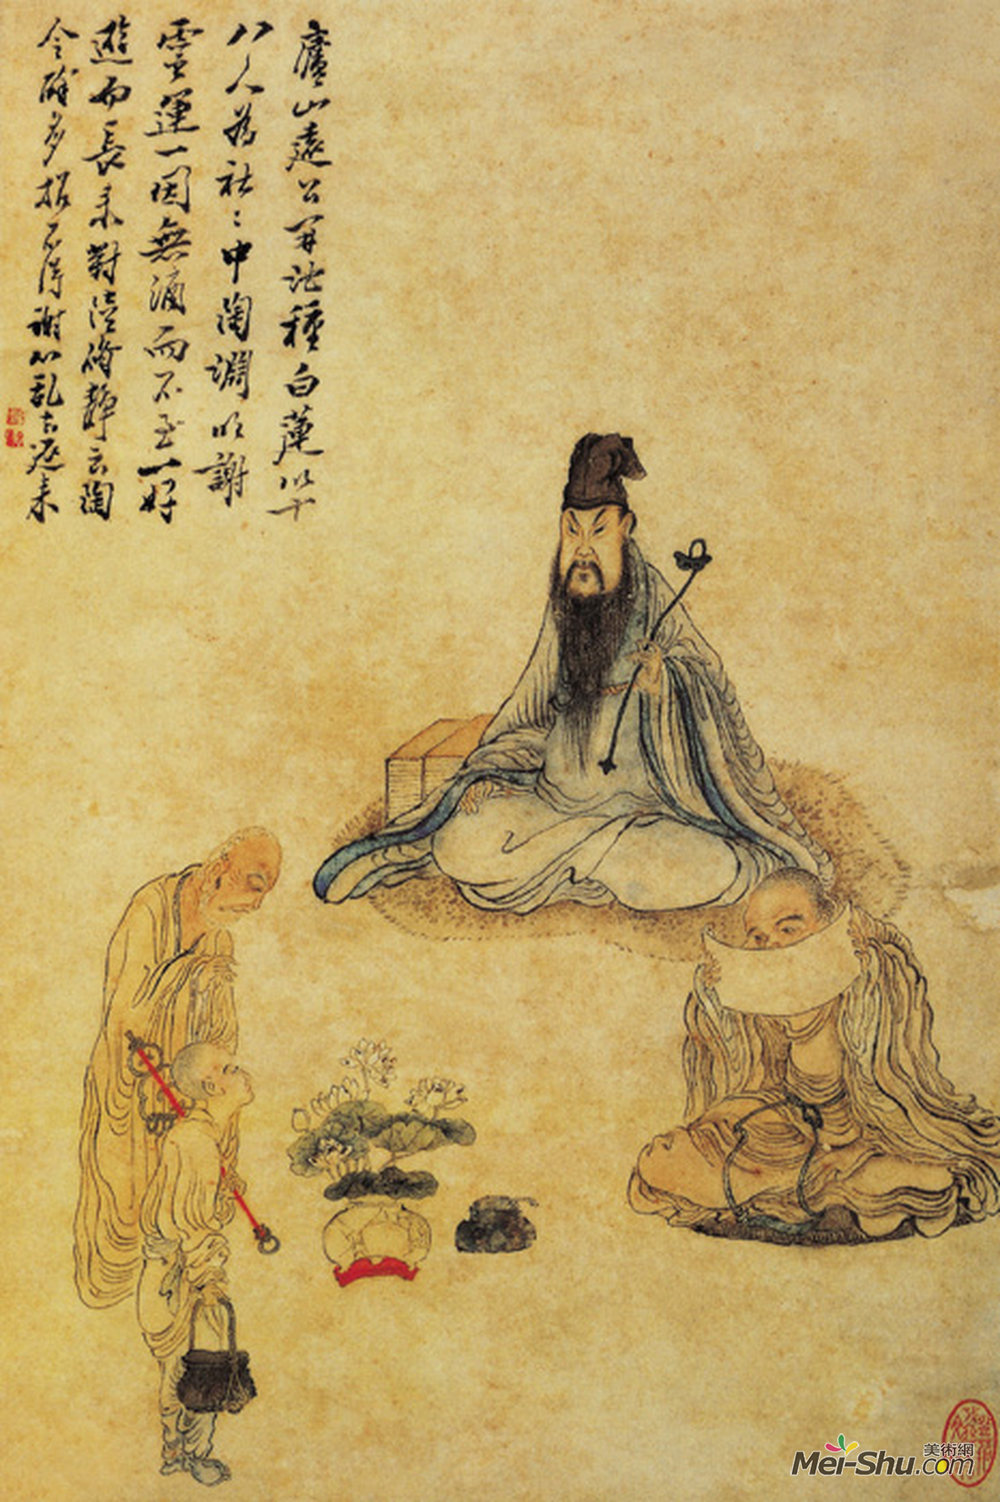 廬山遠公開池種白蓮以十
八人為社〻中陶淵明謝
靈運一因無酒而不至一好
遊而長來對陸脩靜云陶
令醉多招不得謝心亂去還來
美術網
Mei-Shu.com